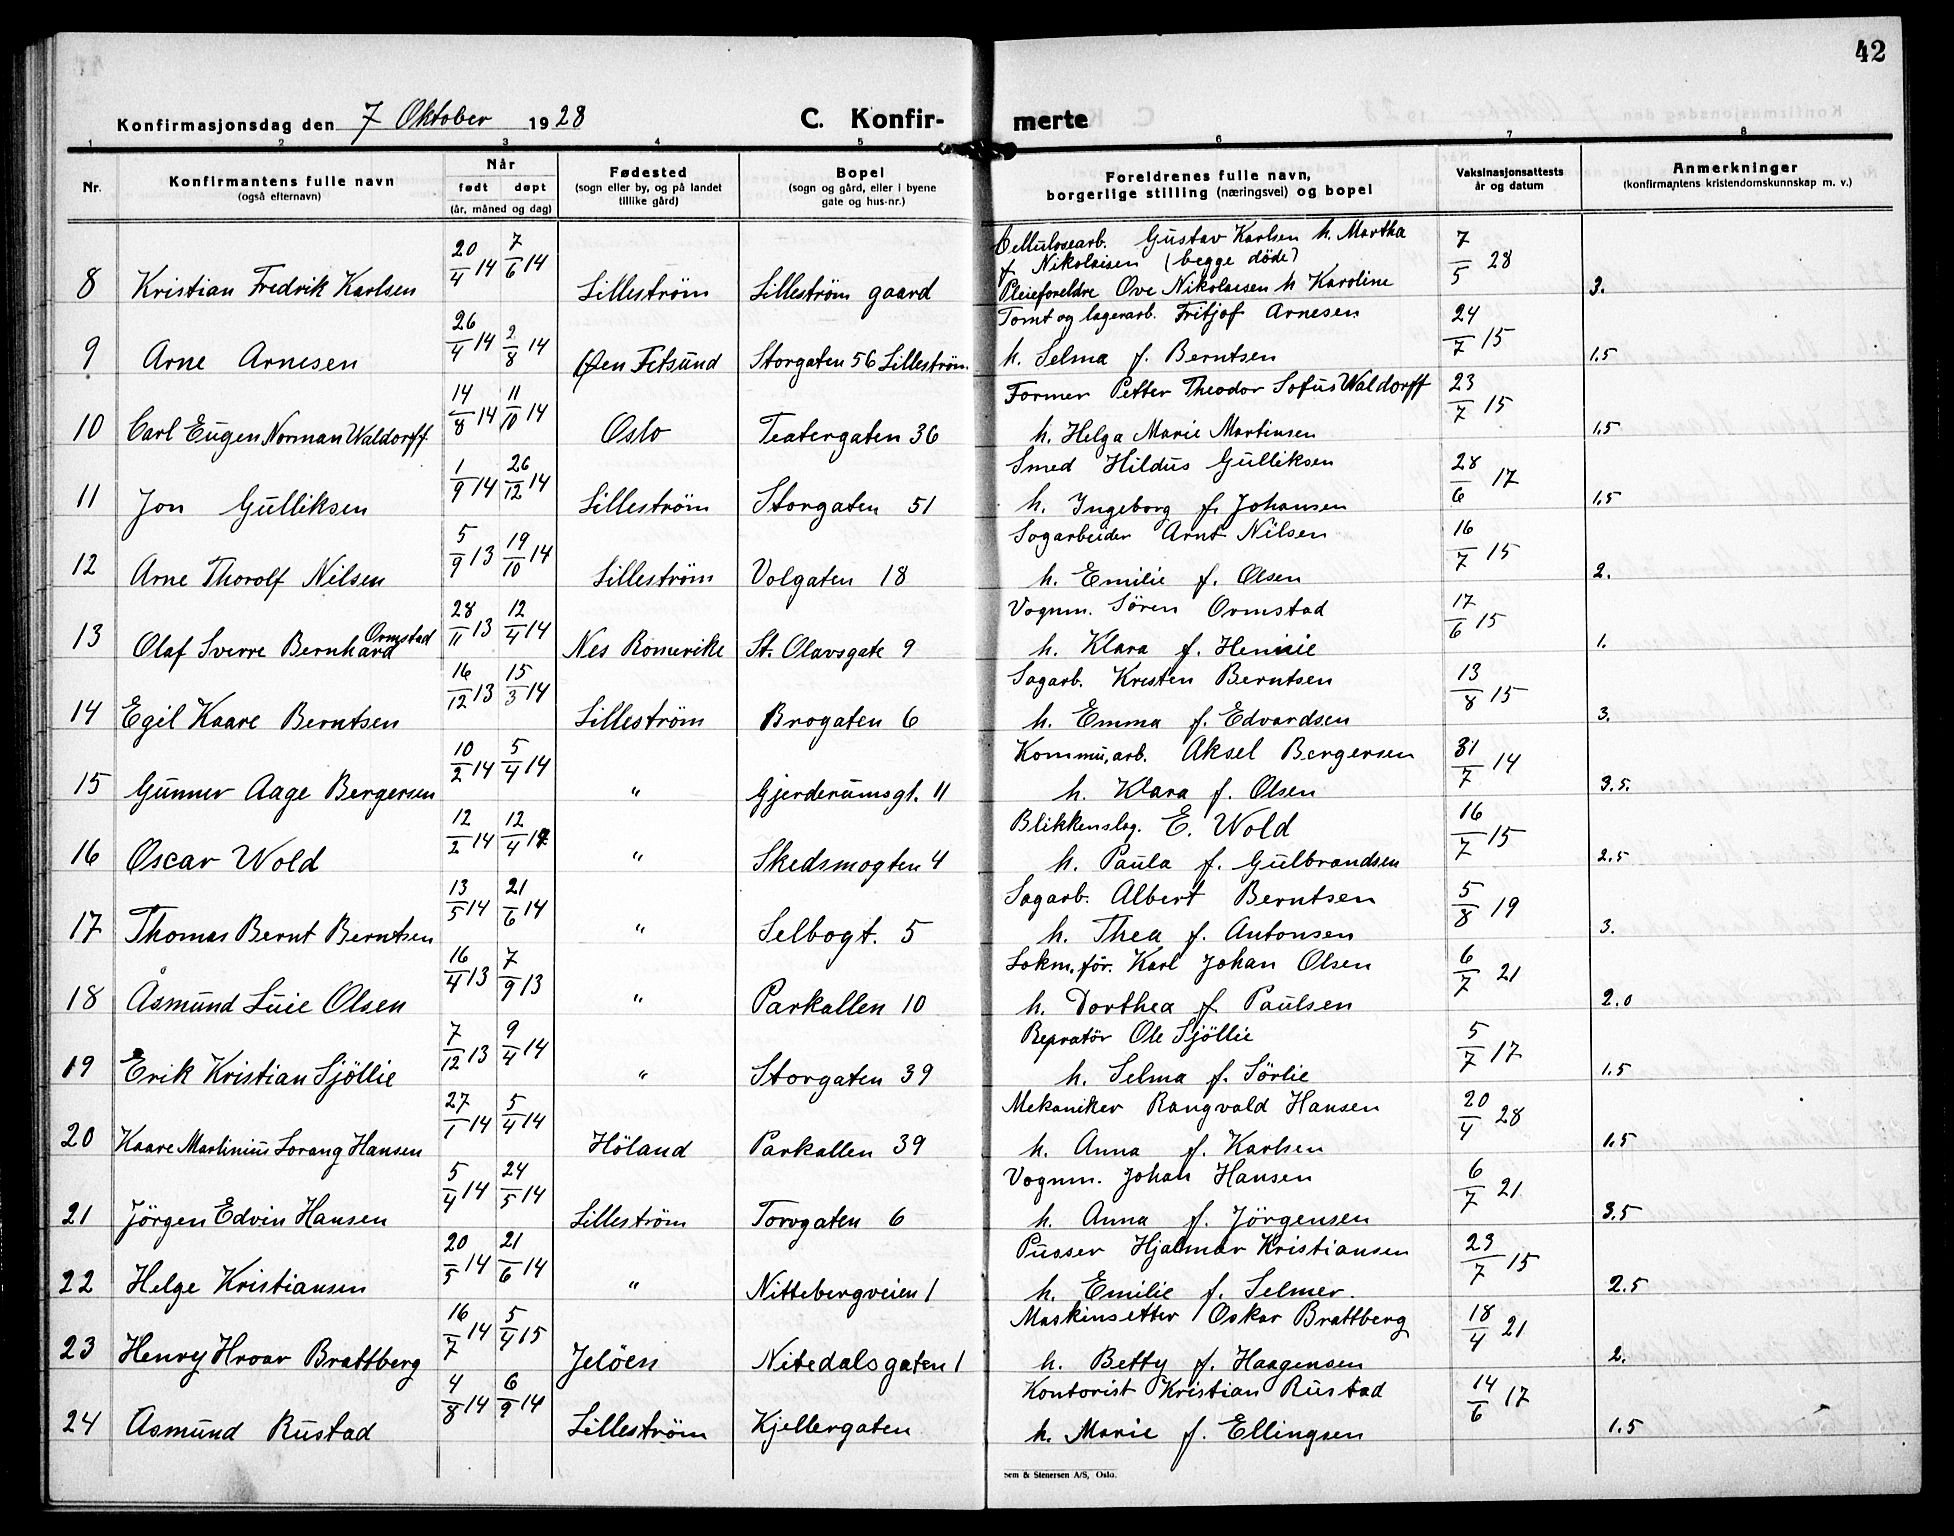 42
Konfirmasjonsdag den 7 Oktober 1928 C. Konfir- merte
1 2 3 4 5 6 7 8
Nr. Konfirmantens fulle navn (også efternavn) Når født døpt (år, måned og dag) Fødested (sogn eller by, og på landet tillike gård) Bopel (sogn og gård, eller i byene gate og hus-nr.) Foreldrenes fulle navn, borgerlige stilling (næringsvei) og bopel Vaksinasjonsattests år og datum Anmerkninger (konfirmantens kristendomskunnskap m. v.)
Cellulosearb. Gustav Karlsen h. Martha
f. Nikolaisen (begge döde)
8 Kristian Fredrik Karlsen 20/4 14 7/6 14 Lilleström Lilleström gaard Pleieforeldre Ove Nikolaisen h Karoline 7/5 28 3.
Tomt og lagerarb. Fritjof Arnesen
9 Arne Arnesen 26/4 14 2/8 14 Øen Fetsund Storgaten 56 Lilleström. h. Selma f. Berntsen 24/7 15 1.5
Former Petter Theodor Sofus Waldorff
10 Carl Eugen Norman Waldorff 14/8 14 11/10 14 Oslo Teatergaten 36 h. Helga Marie Martinsen 23/7 15 1.5
Smed Hildus Gulliksen
11 Jon Gulliksen 1/9 14 26/12 14 Lilleström Storgaten 51 h. Ingeborg f. Johansen 28/6 17 1.5
Sagarbeider Arnt Nilsen
12 Arne Thorolf Nilsen 5/9 13 19/10 14 Lilleström Volgaten 18 h. Emilie f. Olsen 16/7 15 2.
Vognm. Sören Ormstad
13 Olaf Sverre Bernhard Ormstad 28/11 13 12/4 14 Nes Romerike St. Olavsgate 9 h. Klara f. Hennie 17/6 15 1.
Sagarb. Kristen Berntsen
14 Egil Kaare Berntsen 16/12 13 15/3 14 Lilleström Brogaten 6 h. Emma f. Edvardsen 13/8 15 3.
Kommu.arb. Aksel Bergersen
15 Gunner Aage Bergersen 10/2 14 5/4 14 " Gjerderumsgt. 11 h. Klara f. Olsen 31/7 14 3.5.
Blikkenslag. E. Wold
16 Oscar Wold 12/2 14 12/4 14 " Skedsmogten 4 h. Paula f. Gulbrandsen 16/7 15 2.5
Sagarb. Albert Berntsen
17 Thomas Bernt Berntsen 13/5 14 21/6 14 " Selbogt. 5 h. Thea f. Antonsen 5/8 19 3.
Lokm.för. Karl Johan Olsen
18 Åsmund Luie Olsen 16/4 13 7/9 13 " Parkallen 10 h. Dorthea f. Paulsen 6/7 21 2.0
Repratör Ole Sjöllie
19 Erik Kristian Sjöllie 7/12 13 9/4 14 " Storgaten 39 h. Selma f. Sörlie 5/7 17 1.5
Mekaniker Rangvald Hansen
20 Kaare Martinius Lorang Hansen 27/1 14 5/4 14 Höland Parkallen 39 h. Anna f. Karlsen 20/4 28 1.5
Vognm. Johan Hansen
21 Jörgen Edvin Hansen 5/4 14 24/5 14 Lilleström Torvgaten 6 h. Anna f. Jörgensen 6/7 21 3.5
Pusser Hjalmar Kristiansen
22 Helge Kristiansen 20/5 14 21/6 14 " Nittebergveien 1 h. Emilie f. Selmer. 23/7 15 2.5
Maskinsetter Oskar Brattberg
23 Henry Hroar Brattberg 16/7 14 5/4 15 Jelöen Nitedalsgaten 1 h. Betty f. Haagensen 18/4 21 2.
Kontorist Kristian Rustad
24 Asmund Rustad 4/8 14 6/9 14 Lilleström Kjellergaten h. Marie f. Ellingsen 14/6 17 1.5
Sem & Stenersen A/S, Oslo.